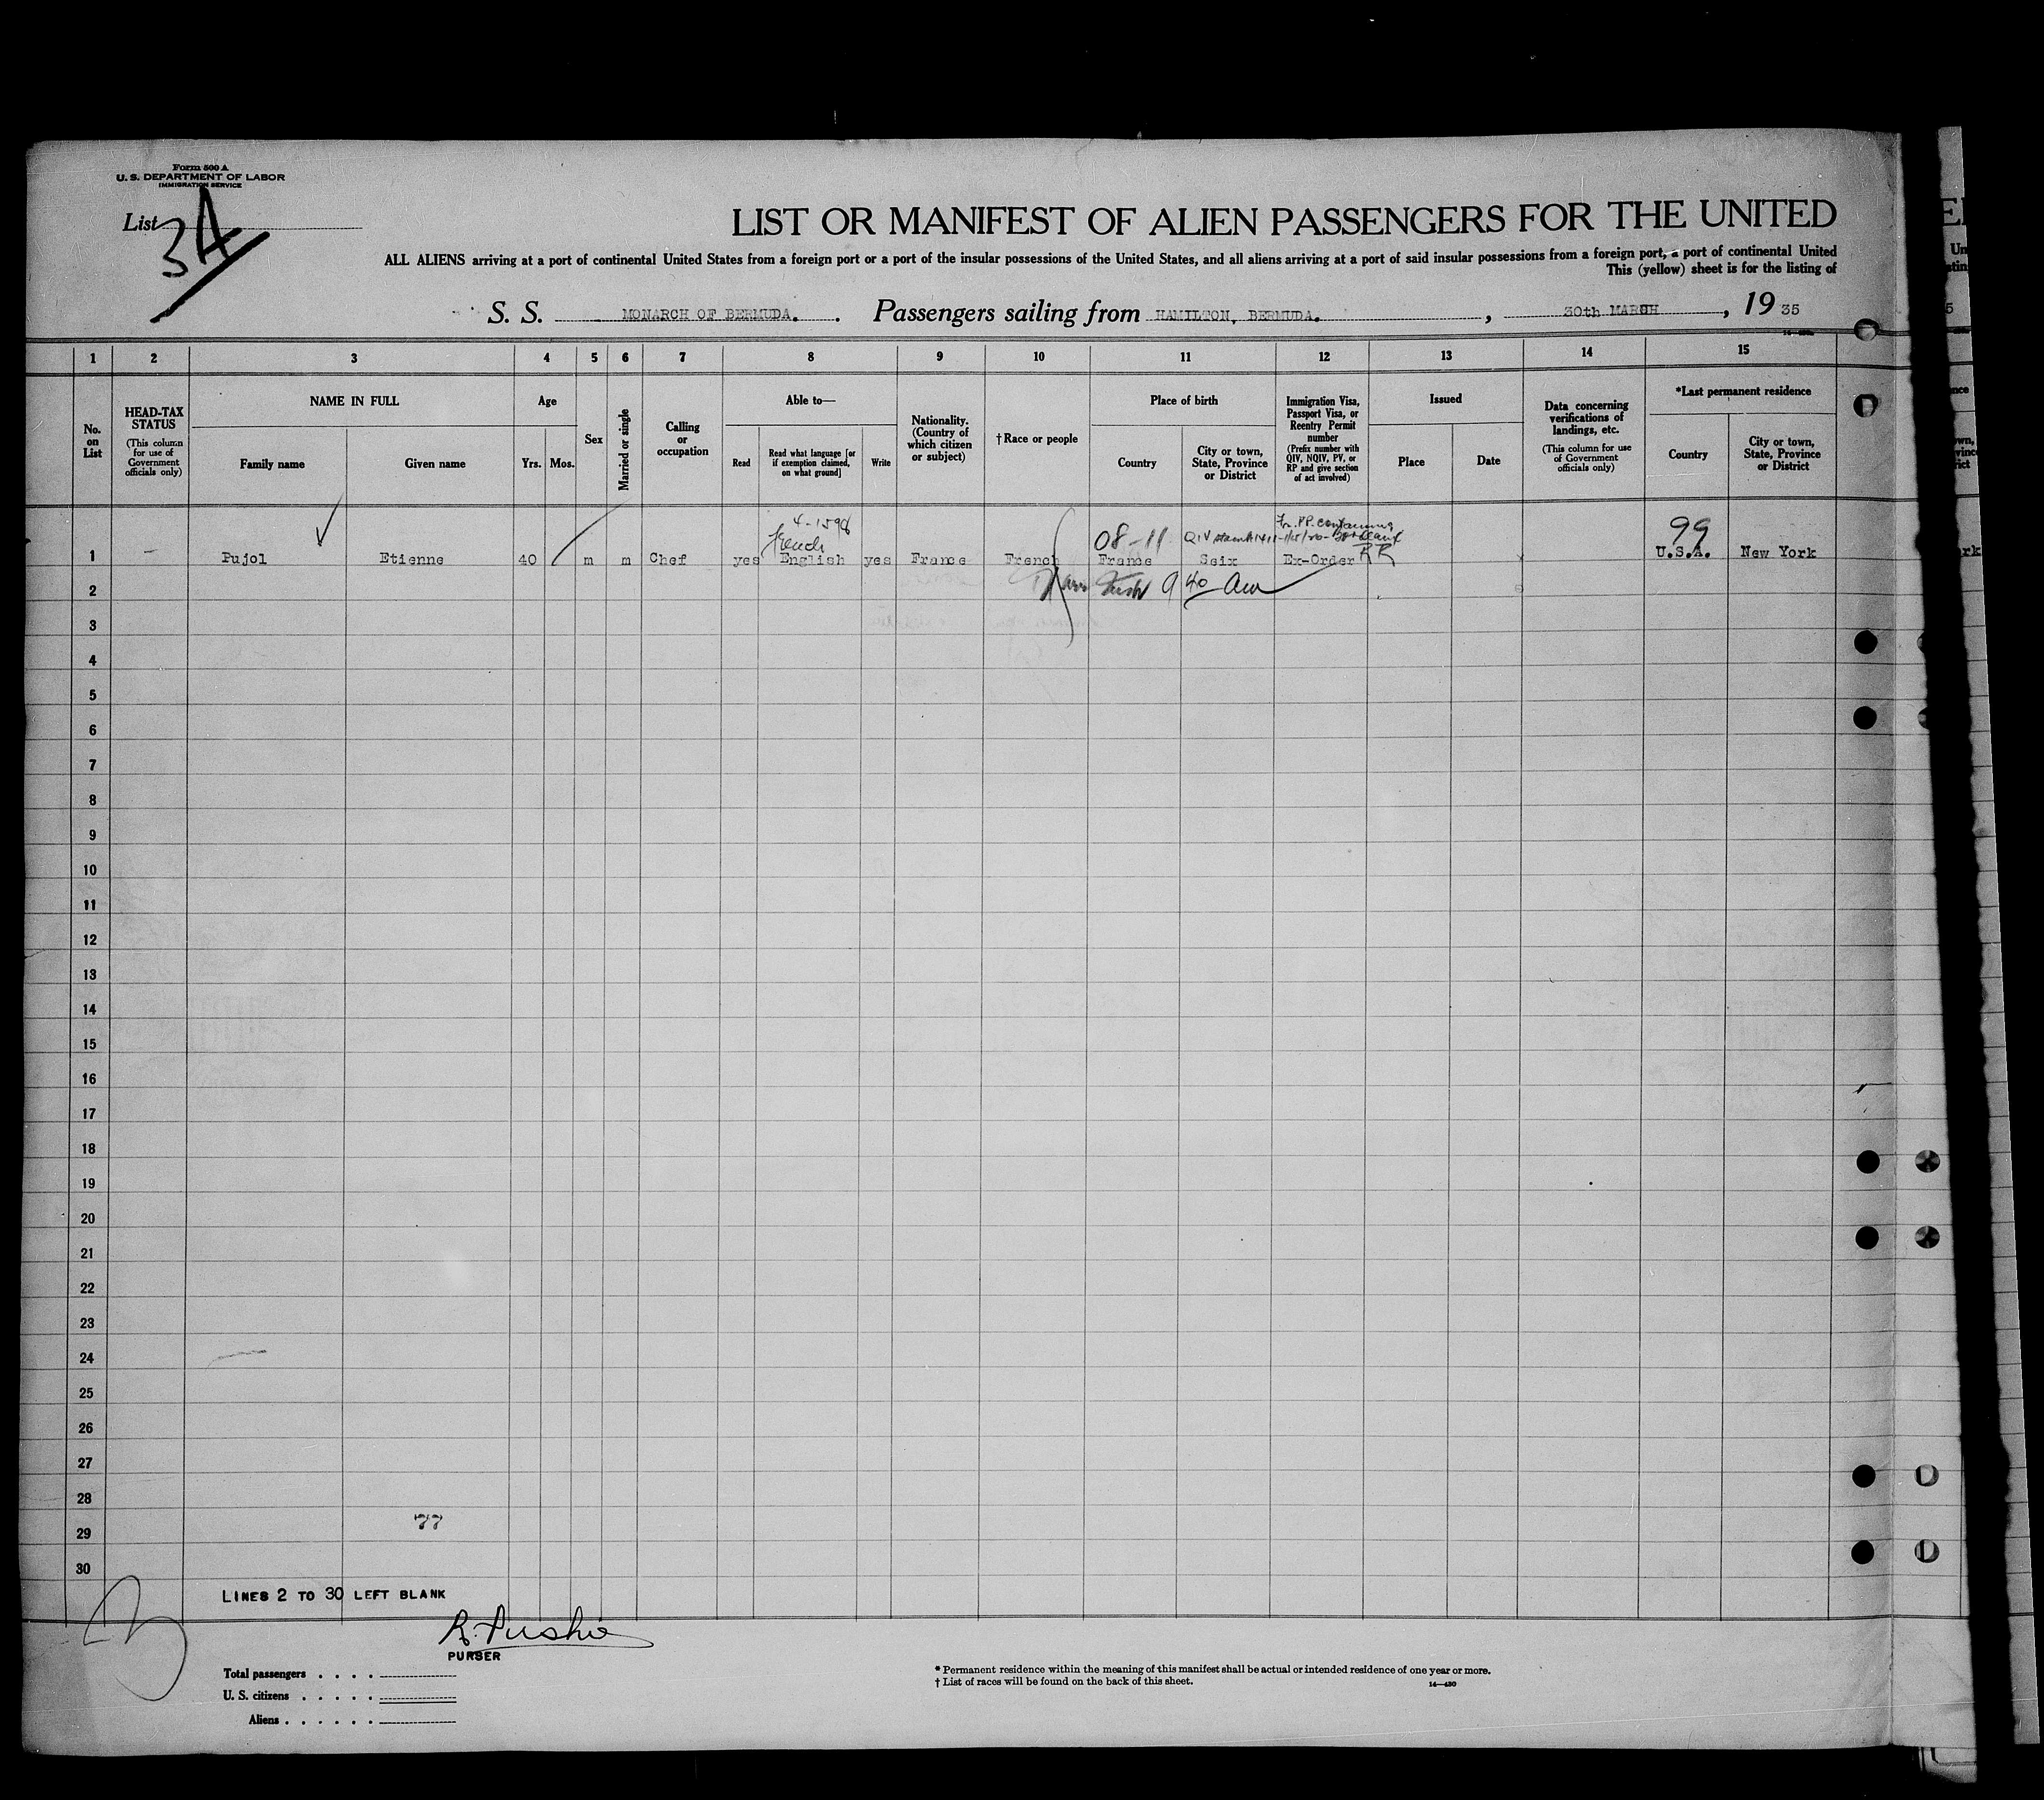 Form 500 A
U. S. DEPARTMENT OF LABOR
IMMIGRATION SERVICE
List 3A
LIST OR MANIFEST OF ALIEN PASSENGERS FOR THE UNITED
ALL ALIENS arriving at a port of continental United States from a foreign port or a port of the insular possessions of the United States, and all aliens arriving at a port of said insular possessions from a foreign port, a port of continental United
This (yellow) sheet is for the listing of
S. S. MONARCH OF BERMUDA. Passengers sailing from HAMILTON, BERMUDA. , 30th MARCH , 19 35
1 2 3 4 5 6 7 8 9 10 11 12 13 14 15
No. on List
HEAD-TAX STATUS (This column for use of Government officials only)
NAME IN FULL
Family name Given name
Age
Yrs. Mos.
Sex
Married or single
Calling or occupation
Able to—
Read Read what language [or if exemption claimed, on what ground] Write
Nationality. (Country of which citizen or subject)
†Race or people
Place of birth
Country City or town, State, Province or District
Immigration Visa, Passport Visa, or Reentry Permit number (Prefix number with QIV, NQIV, PV, or RP and give section of act involved)
Issued
Place Date
Data concerning verifications of landings, etc. (This column for use of Government officials only)
*Last permanent residence
Country City or town, State, Province or District
4-1598
French 08-11 99
1 – Pujol Etienne 40 m m Chef yes English yes France French France Seix Ex-Order RR U.S.A. New York
2 9 40 am
3
4
5
6
7
8
9
10
11
12
13
14
15
16
17
18
19
20
21
22
23
24
25
26
27
28
77
29
30
LINES 2 TO 30 LEFT BLANK
PURSER
Total passengers . . . .
U. S. citizens . . . . .
Aliens . . . . . .
* Permanent residence within the meaning of this manifest shall be actual or intended residence of one year or more.
† List of races will be found on the back of this sheet.
14—430